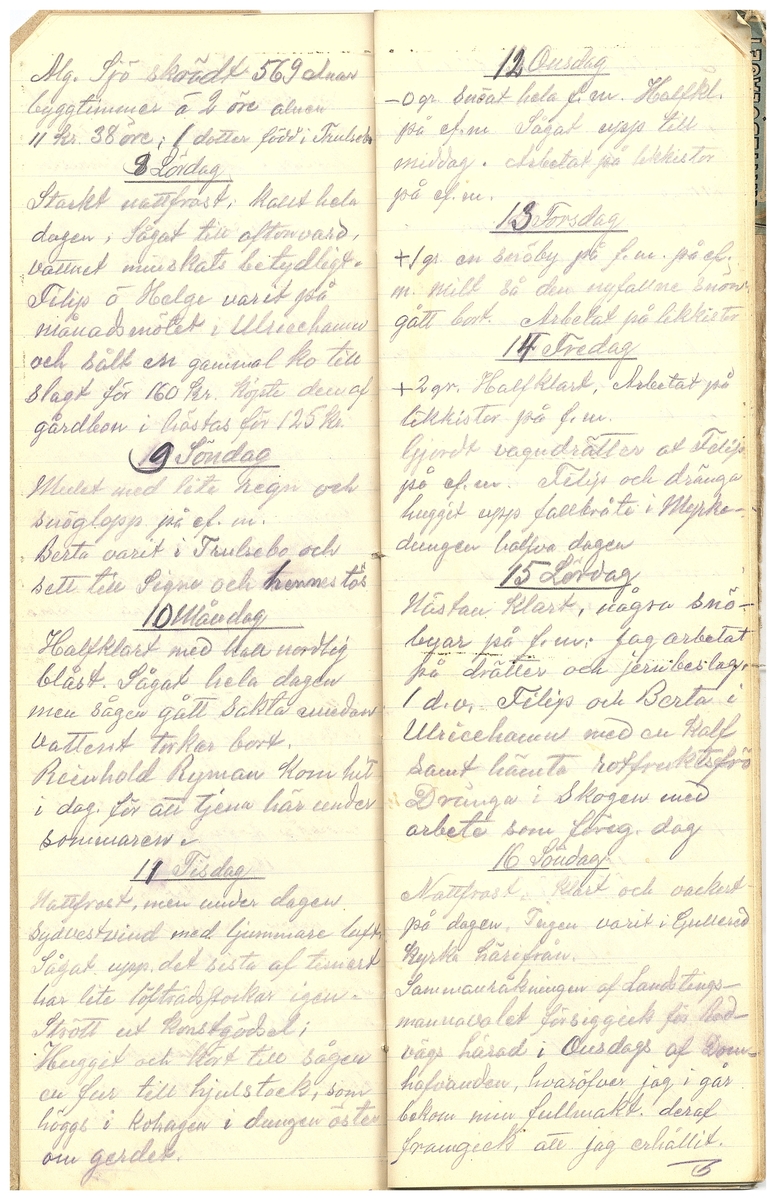 Alg. Sjö skrädt 569 alnar
byggtimmer á 2 öre alnen
11 kr. 38 öre; 1 dotter född i Trulsebo
8 Lördag
Starkt nattfrost, kallt hela
dagen, Sågat till aftonvard,
vattnet minskats betydligt.
Filip o Helge varit på
månadsmötet i Ulricehamn
och sålt en gammal ko till
slagt för 160 kr. köpte den af
gårdbon i höstas för 125 kr.
9 Söndag
Mulet med lite regn och
snöglopp på ef. m.
Berta varit i Trulsebo och
sett till Signe och hennes tös
10 Måndag
Halfklart med kall nordlig
blåst. Sågat hela dagen
men sågen gått sakta emedan
vattnet torkar bort.
Reinhold Ryman kom hit
i dag för att tjena här under
sommaren.
11 Tisdag
Nattfrost, men under dagen
sydvestvind med ljummare luft,
Sågat upp det sista af timret
har lite löfträdstockar igen.
Strött ut konstgödsel;
Hugget och kört till sågen
en fur till hjulstock, som
höggs i kohagen i dungen öster
om gerdet.
12 Onsdag
-0 gr. snöat hela f.m. Halfkl.
på ef.m Sågat upp till
middag. Arbetat på likkistor
på ef.m.
13 Torsdag
+1 gr. en snöby på f.m. på ef.
m. milt så den nyfallne snön
gått bort. Arbetat på likkistor
14 Fredag
+2 gr. Halfklart, Arbetat på
likkistor på f.m.
Gjordt vagndrätter at Filip
på ef.m. Filip och dränga
hugget upp fallbråte i Myrke-
dungen halfva dagen
15 Lördag
Nästan klart, några snö-
byar på f.m; Jag arbetat
på drätter och jernbeslag.
1 d.v. Filip och Berta i
Ulricehamn med en kalf
samt hämta rotfruktsfrö
Dränga i skogen med
arbete som föreg. dag
16 Söndag
Nattfrost, klart och vackert
på dagen. Ingen varit i Gullered
kyrka härifrån.
Sammanräkningen af Landstings-
mannavalet försiggick för Red-
vägs härad i Onsdags af Dom-
hafvanden, hvaröfver jag i går
bekom min fullmakt. deraf
framgick att jag erhållit.